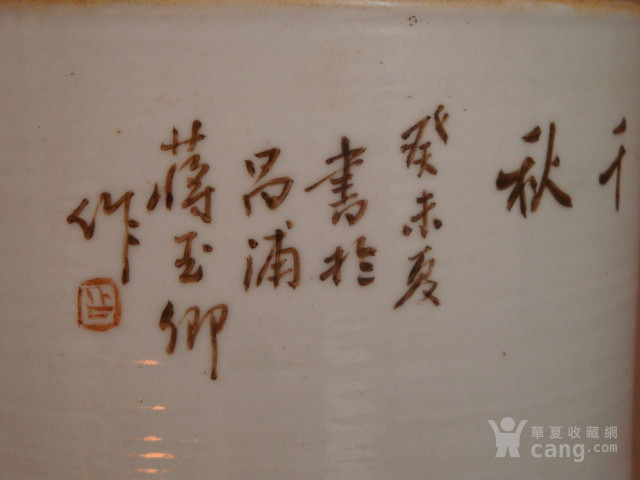 秋
癸未夏
書於
昌浦
蔣玉卿
作
華夏收藏網
cang.com